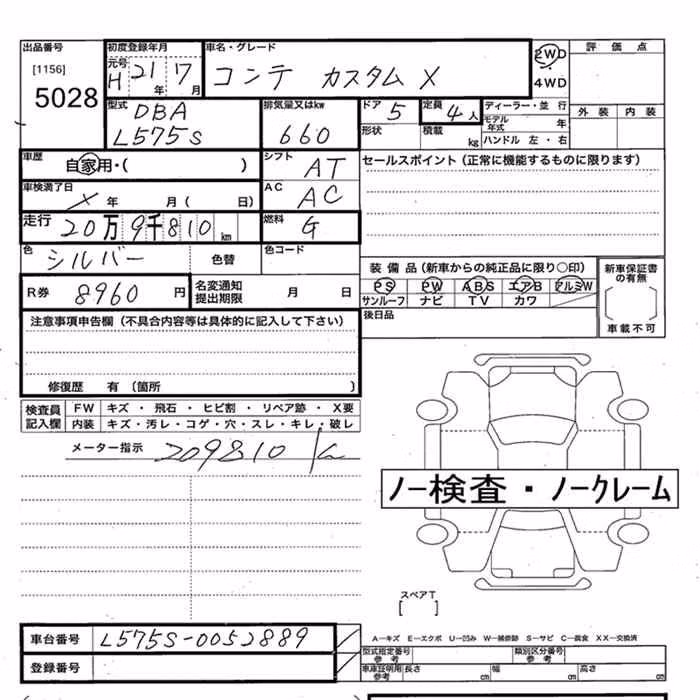 出品番号 初度登録年月 車名・グレード 評価点
[1156] 元号 H 21年 7月 コンテ カスタム X 2WD ・ 4WD
5028 外装 内装
型式 DBA L575S 排気量又はkw 660 ドア 5 定員 4人 ディーラー・並行
形状 積載 kg モデル年式 年
ハンドル 左・右
車歴 自家用・( ) シフト AT セールスポイント(正常に機能するものに限ります)
車検満了日 X年 月( 日) AC AC
走行 20万9千810km 燃料 G
色 シルバー 色替 色コード
装備品(新車からの純正品に限り○印) 新車保証書の有無
R券 8960円 名変通知提出期限 月 日 PS PW ABS エアB アルミW
サンルーフ ナビ TV カワ
[ ]
車載不可
注意事項申告欄(不具合内容等は具体的に記入して下さい) 後日品
修復歴 有(箇所 )
検査員記入欄 FW キズ・飛石・ヒビ割・リペア跡・X要
内装 キズ・汚レ・コゲ・穴・スレ・キレ・破レ
メーター指示 209810 km
ノー検査・ノークレーム
スペアT
[ ]
車台番号 L575S-0052889
A―キズ E―エクボ U―凹み W―補修跡 S―サビ C―腐食 XX―交換済
登録番号 型式指定番号 参考 類別区分番号 参考
車庫証明用 参考 長さ cm 幅 cm 高さ cm